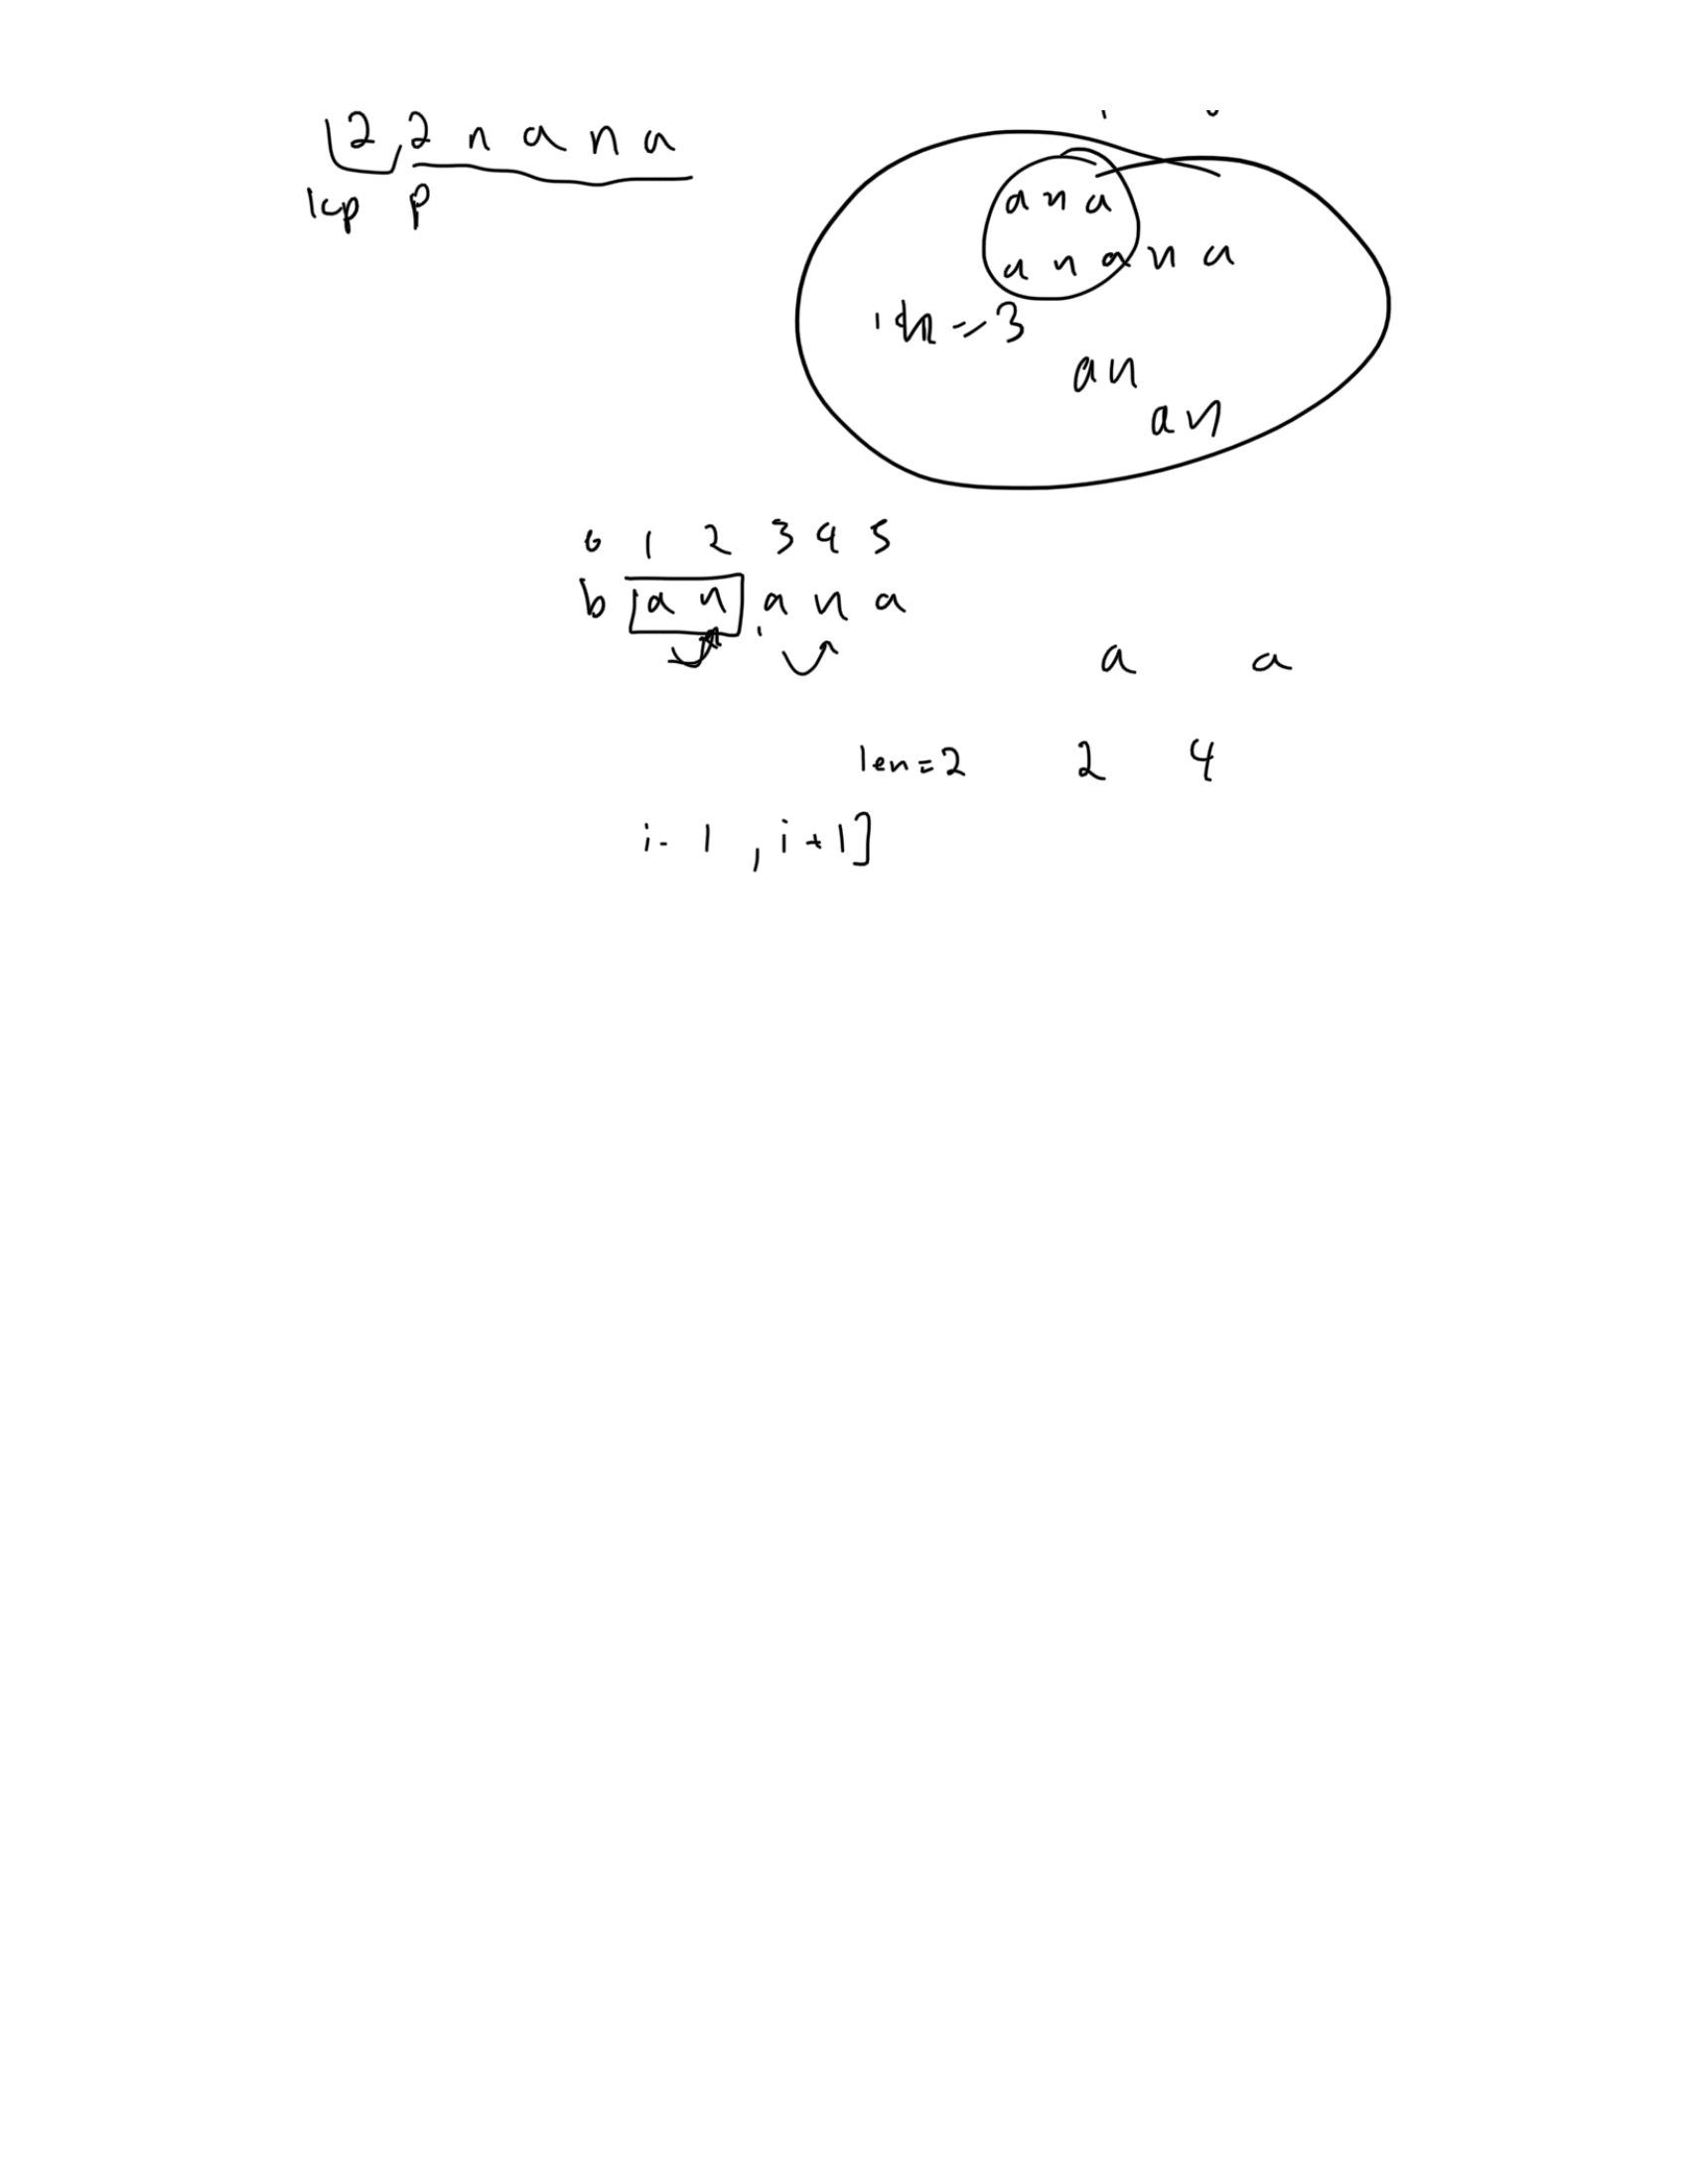 2 2 n a n a
lcp p
a n a
a n a n a
= 3
an
an
0 1 2 3 4 5
b a n a n a
a a
len=2 2 4
i-1, i+1]